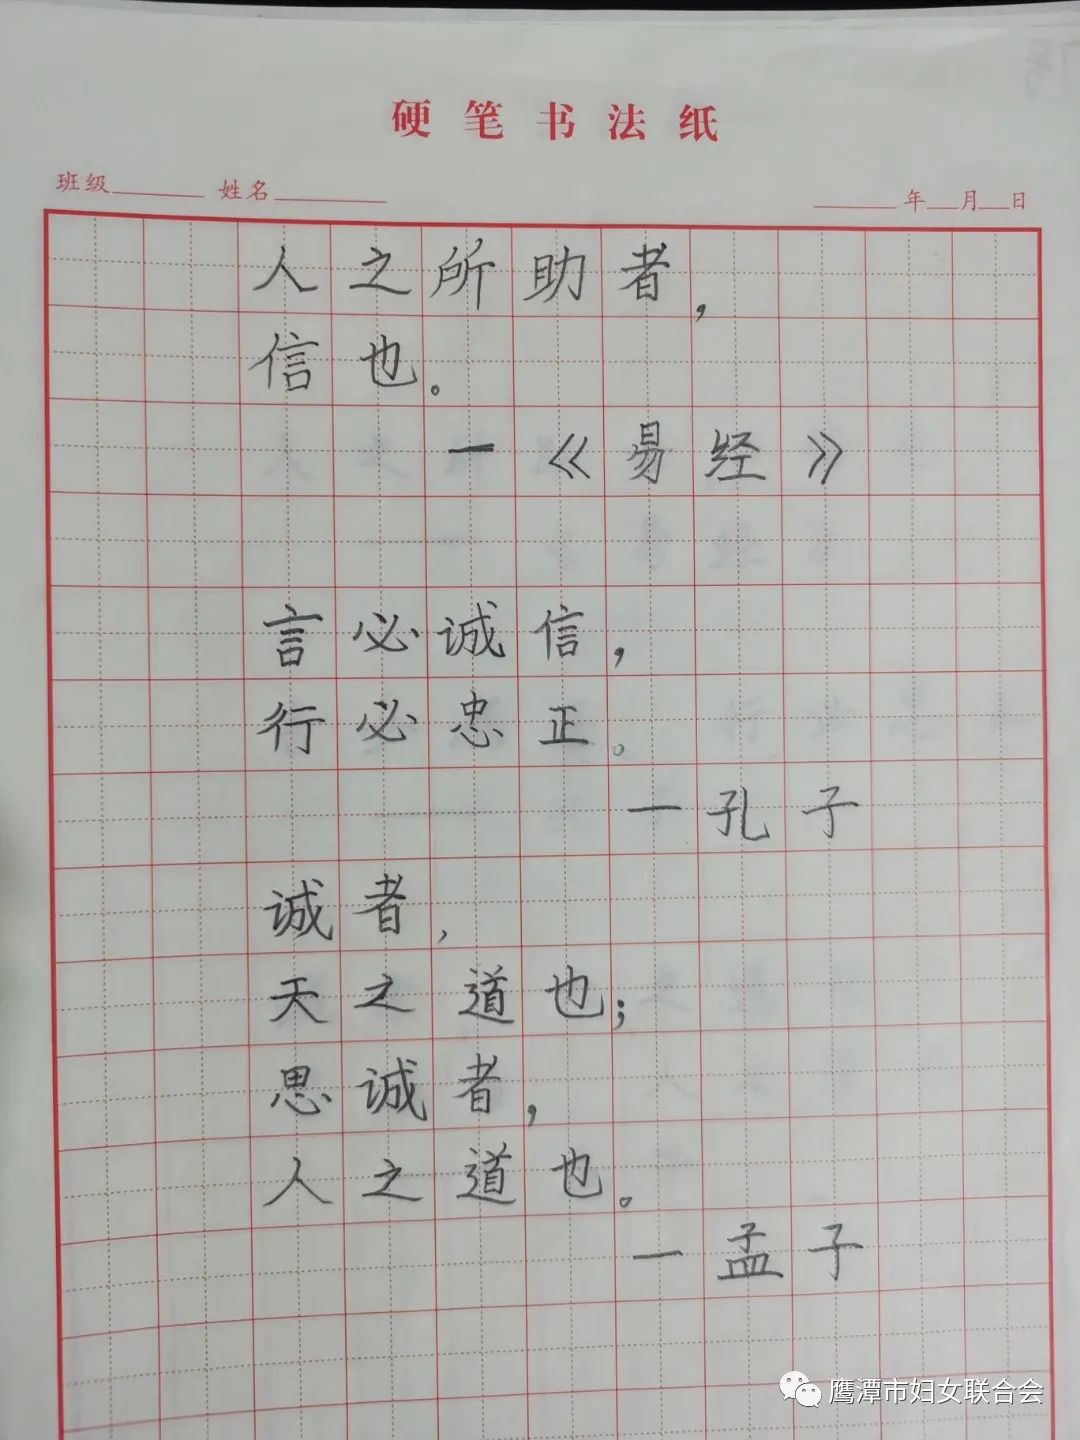 硬笔书法纸
班级 姓名 年 月 日
人之所助者，
信也。
一《易经》
言必诚信，
行必忠正。
一孔子
诚者，
天之道也；
思诚者，
人之道也。
一孟子
鹰潭市妇女联合会